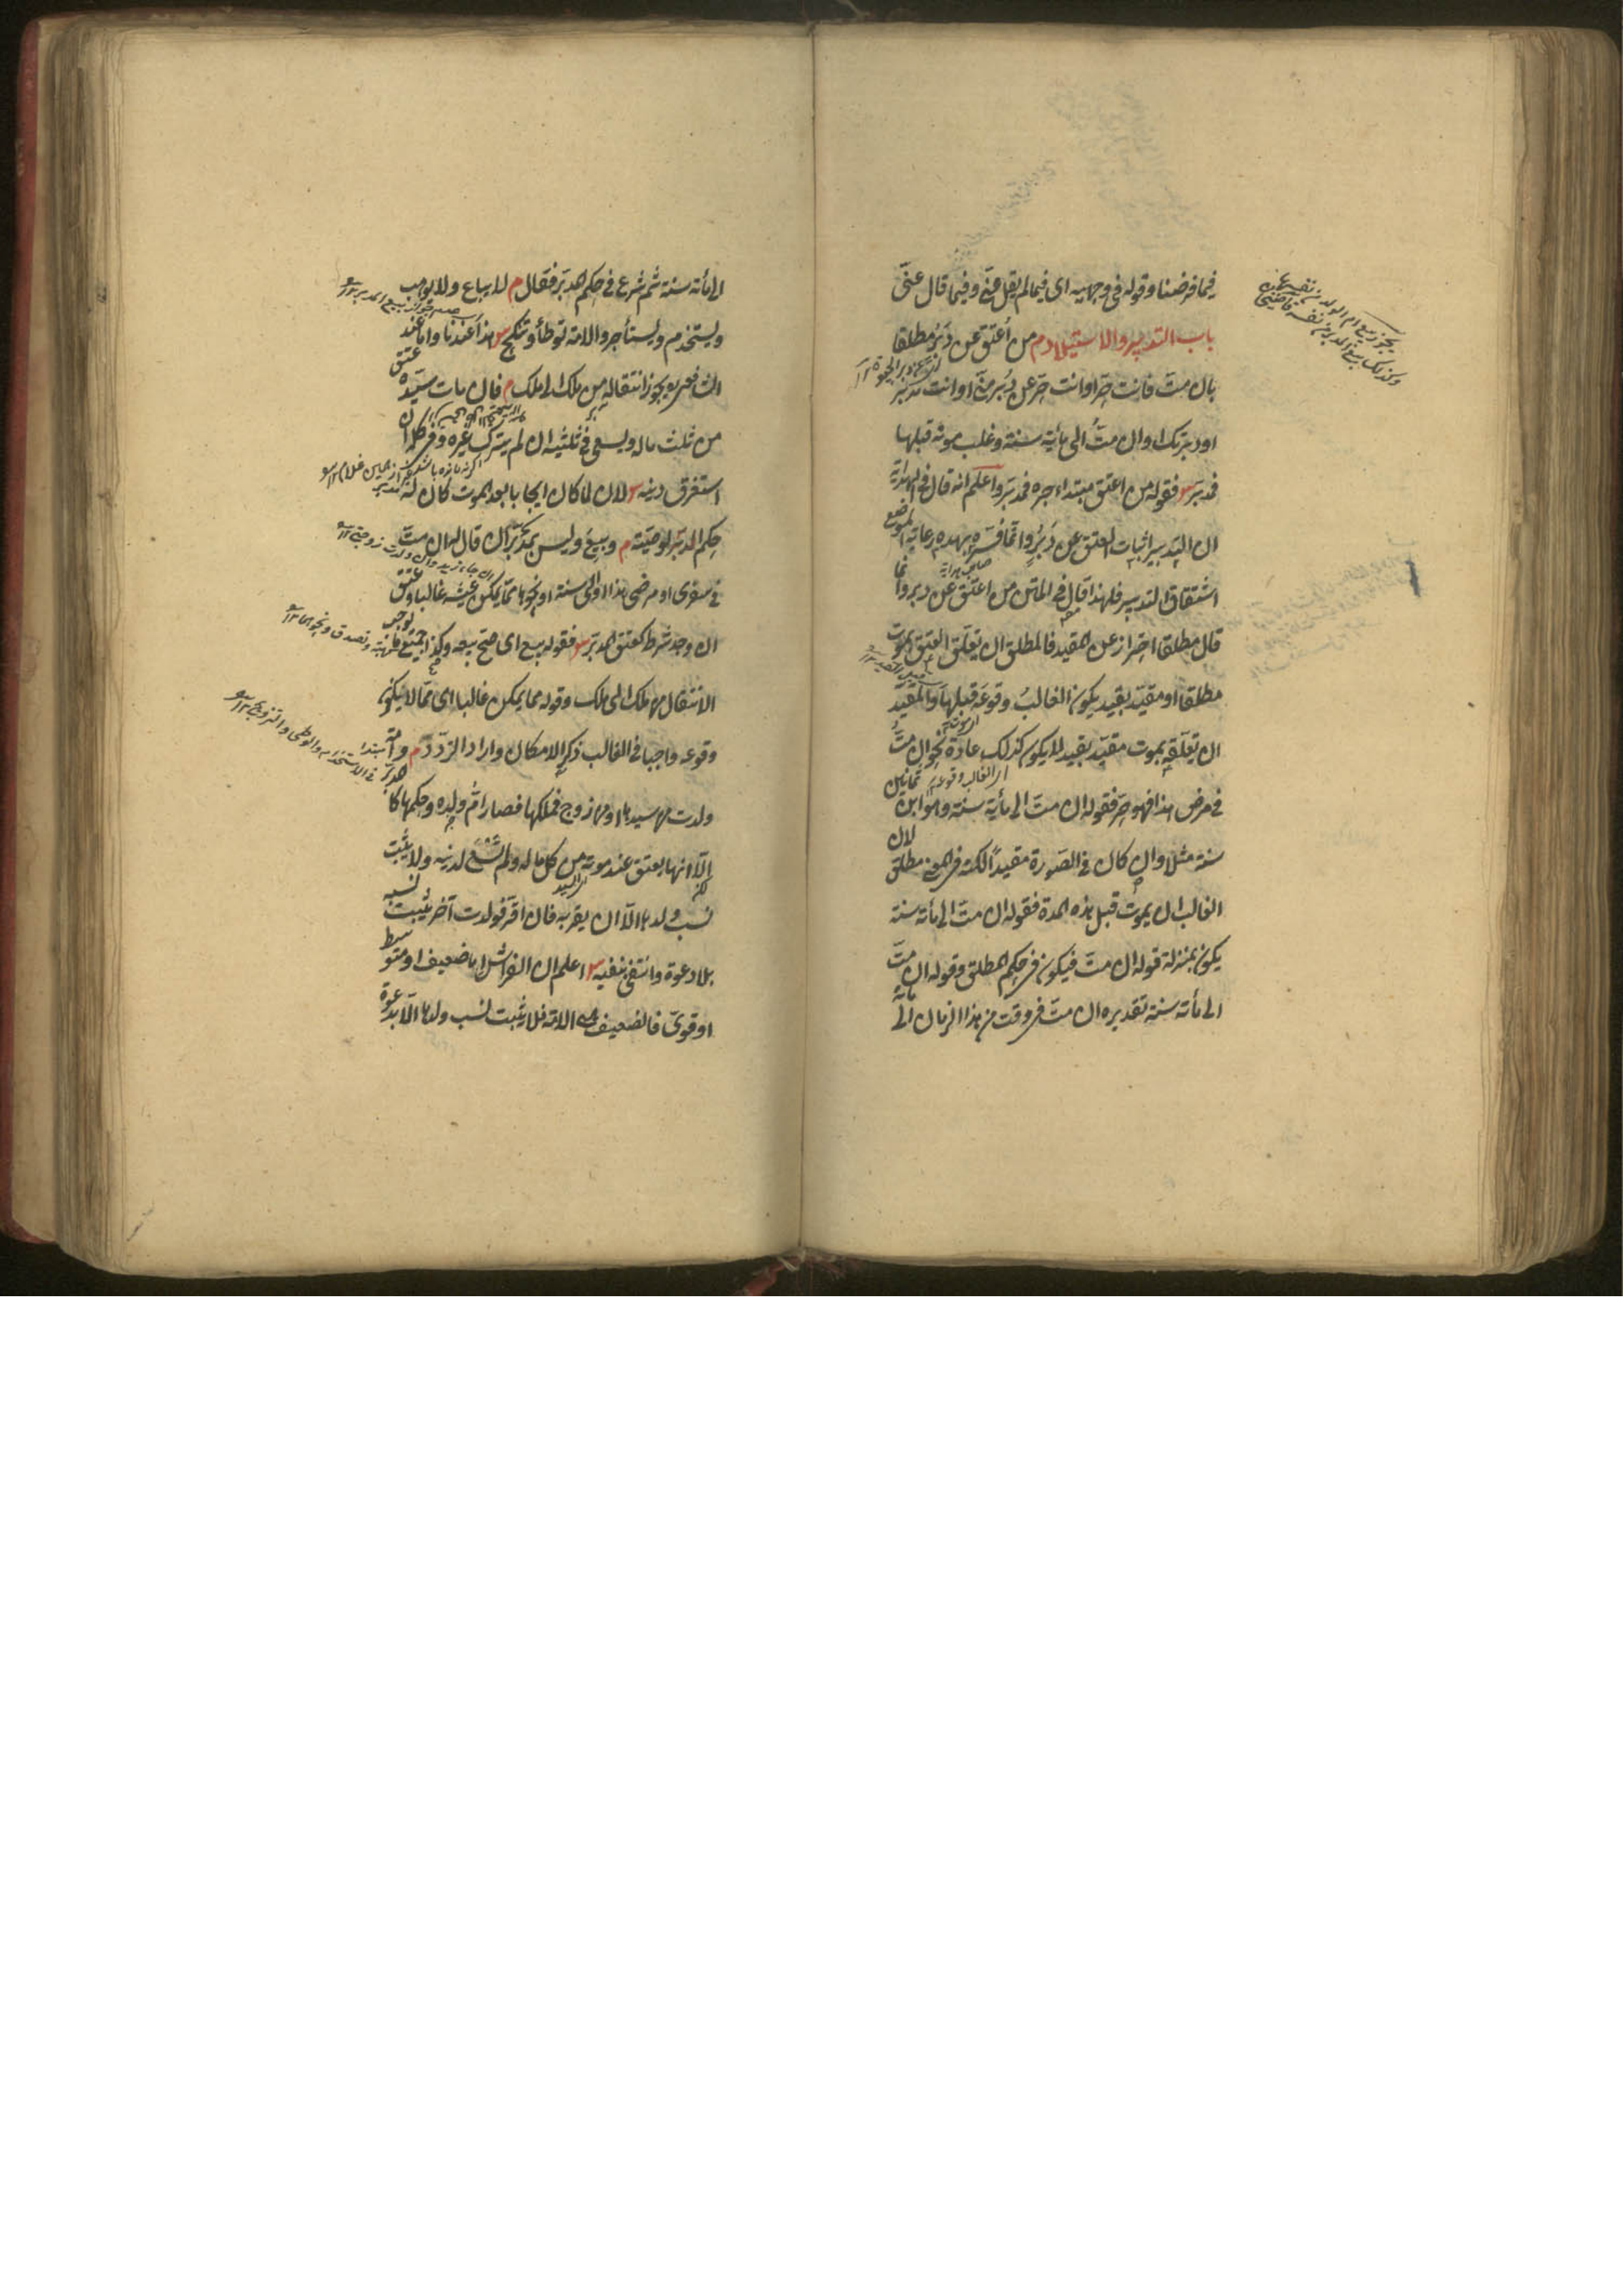 فيما فرضنا وقوله فى وجهيه اى فيما لم يقل عنّى وفيما قال عنّى
باب التدبير والاستيلاد م من أعتق عن دُبُر مطلقا
بان متّ فانت حرّ او انت حرّ عن دُبر منّى او انت مدبّر
او دبرتك او ان متُّ الى مأية سنة وغلب موته قبلها
فمدبّر س فقوله من اعتق مبتداء خبره فمدبّر واعلم انه قال فى الهداية
ان التدبير اثبات العتق عن دُبُرٍ وانّما فسّره بهذه رعاية لموضع
اشتقاق التدبير فلهذا قال فى المتن من اعتق عن دبر وانما
قال مطلقا احتراز عن المقيد فالمطلق ان يعلّق العتق بموت
مطلقا او مقيّد بقيد يكون الغالبُ وقوعَه قبلها والمقيّد
ان تعلّقه بموت مقيّد بقيد لا يكون كذلك عادة نحو ان متّ
فى مرض هذا فهو حرّ فقوله ان متّ الى مأية سنة وهو ابن ثمانين
سنة مثلا وان كان فى الصورة مقيدًا لكنه فى المعنى مطلق لان
الغالب ان يموت قبل هذه المدة فقوله ان متّ الى مأته سنة
يكون بمنزلة قوله ان متّ فيكون فى حكم المطلق وقوله ان متّ
الى مأته سنة تقديره ان متّ فى وقت من هذا الزمان الى مأته
يجوز بيع ام الولد من نفسها
وكذلك بيع المدبر من نفسه قاضيخان
الى مأته سنة ثم شرع فى حكم المدبّر فقال م لا يباع ولا يوهب
ويستخدم ويستأجر والامة توطأ وتنكح س هذا عندنا واما عند
الشافعى يجوز انتقاله من ملك الى ملك م فان مات سيّده عتق
من ثلث ماله ويسعى فى ثلثيه ان لم يترك غيره وفى كله ان
استغرق دينه س لان لما كان ايجابا بعد الموت كان له
حكم المدبّر الوصية م وبيع وليس بمدبّر ان قال له ان متّ
فى سفرى او مرضى هذا او الى سنة او نحوها ممّا يمكن غالبا وعتق
ان وجد شرط كعتق المدبّر س فقوله بيع اى صحّ بيعه وكذا جميع ما يوجب
الانتقال من ملك الى ملك وقوله مما يمكن غالبا اى ممّا لا يكون
وقوعه واجبا فى الغالب ذكر الامكان واراد التردّد م وامة
ولدت من سيدها او من زوج فملكها فصار امّ ولده وحكمها كالمدبر
الّا انها يعتق عند موته من كل ماله ولم تسع لدينه ولا يثبت
نسب ولدها الّا ان يقربه فان اقرّ فولدت آخر يثبت نسبه
بلا دعوة وانتفى بنفيه س اعلم ان الفراش اما ضعيف او متوسط
او قوىّ فالضعيف هى الامة فلا يثبت نسب ولدها الّا بدعوة